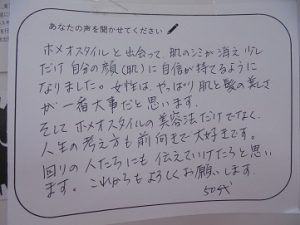 あなたの声を聞かせてください
ホメオスタイルと出会って、肌のシミが消え少し
だけ自分の顔(肌)に自信が持てるように
なりました。女性は、やっぱり肌と髪の美しさ
が一番大事だと思います。
そしてホメオスタイルの美容法だけでなく、
人生の考え方も前向きで大好きです。
回りの人たちにも伝えていけたらと思い
ます。これからもよろしくお願いします。
50代